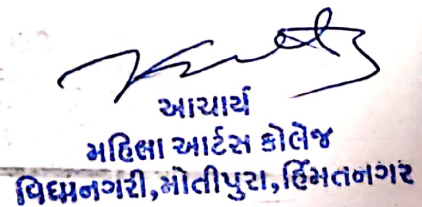 આચાર્ય
મહિલા આર્ટસ કોલેજ
વિદ્યાનગરી,મોતીપુરા,હિંમતનગર